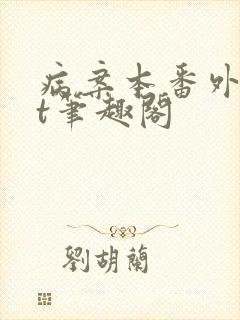 病案本番外
t笔趣阁
劉胡蘭